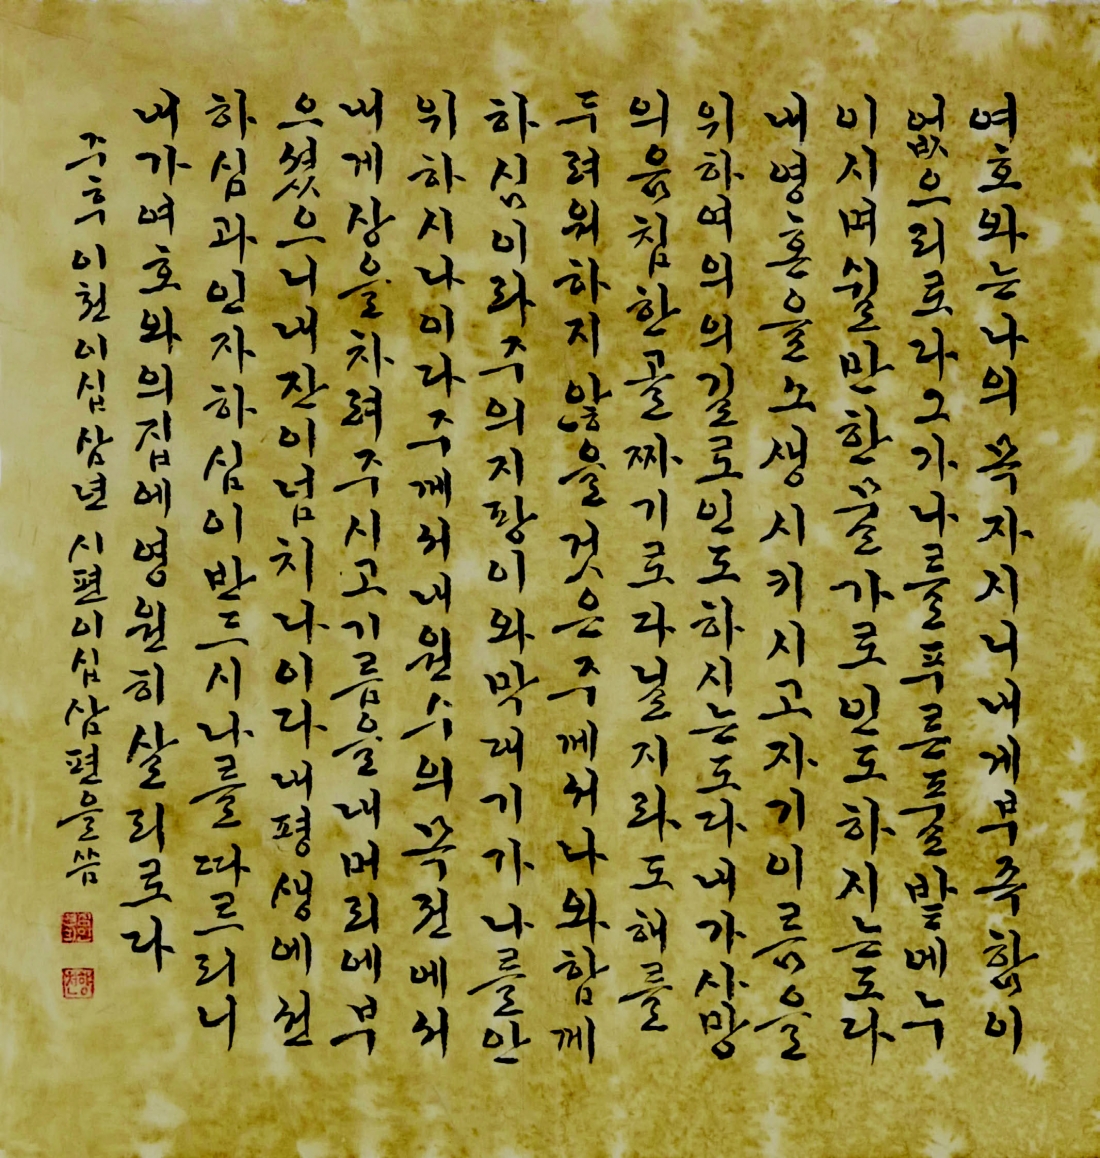 여호와는나의목자시니내게부족함이
없으리로라그가나를푸른풀밭에누
이시며쉴만한물가로인도하시는도다
내영혼을소생시키시고자기이름을
위하여의의길로인도하시는도다내가사망
의음침한골짜기로다닐지라도해를
두려워하지않을것은주께서나와함께
하심이라주의지팡이와막대기가나를안
위하시나이다주께서내원수의목전에서
내게상을차려주시고기름을내머리에부
으셨으니내잔이넘치나이다내평생에선
하심과인자하심이반드시나를따르리니
내가여호와의집에영원히살리로다
주후이천이십삼년시편이십삼편을씀